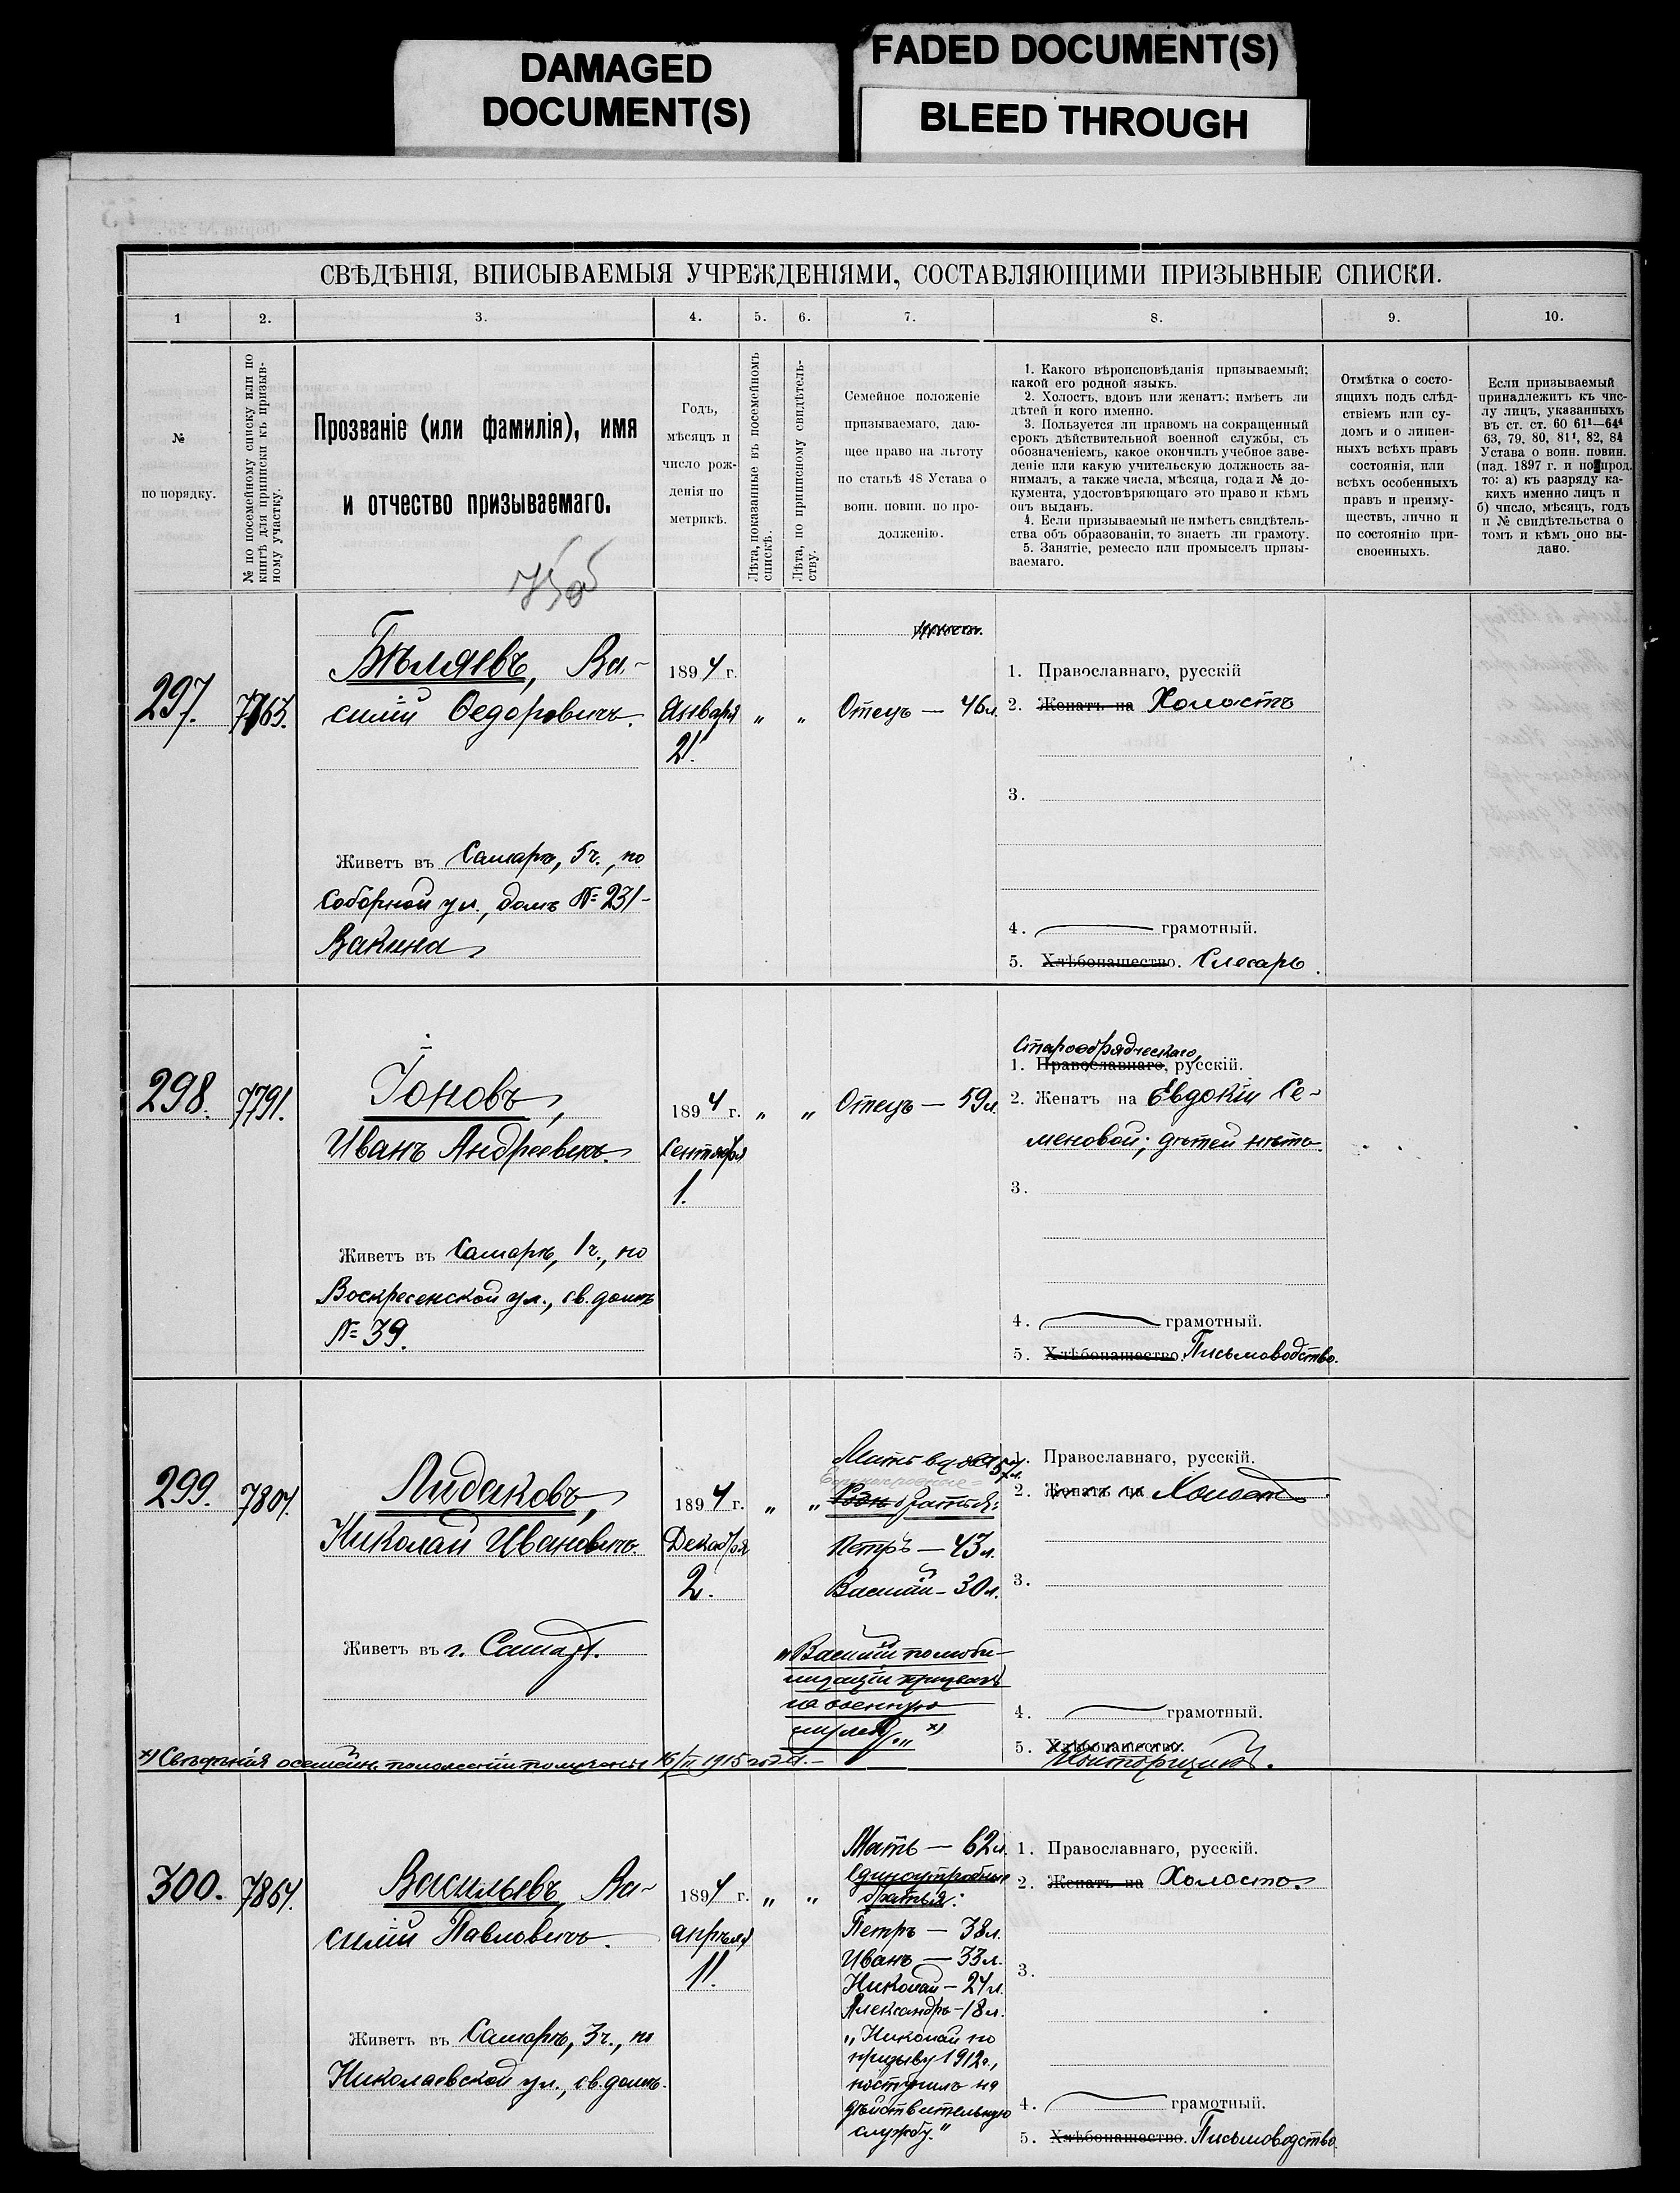 DAMAGED
DOCUMENT(S)
FADED DOCUMENT(S)
BLEED THROUGH
СВѢДѢНІЯ, ВПИСЫВАЕМЫЯ УЧРЕЖДЕНІЯМИ, СОСТАВЛЯЮЩИМИ ПРИЗЫВНЫЕ СПИСКИ.
1 2. 3. 4. 5. 6. 7. 8. 9. 10.
№
по порядку.
№ по посемейному списку или по
книгѣ для приписки къ призыв-
ному участку.
Прозваніе (или фамилія), имя
и отчество призываемаго.
Годъ,
мѣсяцъ и
число рож-
денія по
метрикѣ.
Лѣта, показанные въ посемейномъ
спискѣ.
Лѣта, по приписному свидѣтель-
ству.
Семейное положеніе
призываемаго, даю-
щее право на льготу
по статьѣ 48 Устава о
воин. повин. по про-
долженію.
1. Какого вѣроисповѣданія призываемый;
какой его родной языкъ.
2. Холостъ, вдовъ или женатъ; имѣетъ ли
дѣтей и кого именно.
3. Пользуется ли правомъ на сокращенный
срокъ дѣйствительной военной службы, съ
обозначеніемъ, какое окончилъ учебное заве-
деніе или какую учительскую должность за-
нималъ, а также числа, мѣсяца, года и № до-
кумента, удостовѣряющаго это право и кѣмъ
онъ выданъ.
4. Если призываемый не имѣетъ свидѣтель-
ства объ образованіи, то знаетъ ли грамоту.
5. Занятіе, ремесло или промыселъ призы-
ваемаго.
Отмѣтка о состо-
ящихъ подъ слѣд-
ствіемъ или су-
домъ и о лишен-
ныхъ всѣхъ правъ
состоянія, или
всѣхъ особенныхъ
правъ и преиму-
ществъ, лично и
по состоянію при-
своенныхъ.
Если призываемый
принадлежитъ къ чис-
лу лицъ, указанныхъ
въ ст. ст. 60 61¹—64⁴
63, 79, 80, 81¹, 82, 84
Устава о воин. повин.
(изд. 1897 г. и по прод.
то: а) къ разряду ка-
кихъ именно лицъ и
б) число, мѣсяцъ, годъ
и № свидѣтельства о
томъ и кѣмъ оно вы-
дано.
297. 7763.
Бѣляевъ, Ва-
силій Федоровичъ.
1894 г.
Января
21.
„ „
Отецъ — 46 л.
1. Православнаго, русскій
2. Женатъ на Холостъ
3.
Живетъ въ Самарѣ, 5 ч., по
Соборной ул., домъ № 231-
Вакина
4. грамотный.
5. Хлѣбопашество. Слесарь.
298. 7791.
Іоновъ,
Иванъ Андреевичъ.
1894 г.
Сентября
1.
„ „
Отецъ — 59 л.
Старообрядческаго,
1. Православнаго, русскій.
2. Женатъ на Евдокіи Се-
меновой; дѣтей нѣтъ.
3.
Живетъ въ Самарѣ, 1 ч., по
Воскресенской ул., св. домъ
№ 39.
4. грамотный.
5. Хлѣбопашество. Письмоводство.
299. 7804.
Лидаковъ,
Николай Ивановичъ.
1894 г.
Декабря
2.
„ „
Мать вдова 57 л.
братья:
Петръ — 43 л.
Василій — 30 л.
„Василій по моби-
лизаціи призванъ
на военную
службу„ х)
1. Православнаго, русскій.
2. Женатъ на Холостъ
3.
Живетъ въ г. Самарѣ.
4. грамотный.
5. Хлѣбопашество.
Конторщикъ.
х) Свѣдѣнія о семейн. положеніи получены 16/II 1915 года.—
300. 7864.
Васильевъ, Ва-
силій Павловичъ.
1894 г.
апрѣля
11.
„ „
Мать — 62 л.
Единоутробные
братья:
Петръ — 38 л.
Иванъ — 33 л.
Николай — 24 л.
Александръ — 18 л.
„Николай по
призыву 1912 г.,
поступилъ на
дѣйствительную
службу."
1. Православнаго, русскій.
2. Женатъ на Холостъ.
3.
Живетъ въ Самарѣ, 3 ч., по
Николаевской ул., св. домъ.
4. грамотный.
5. Хлѣбопашество. Письмоводство.